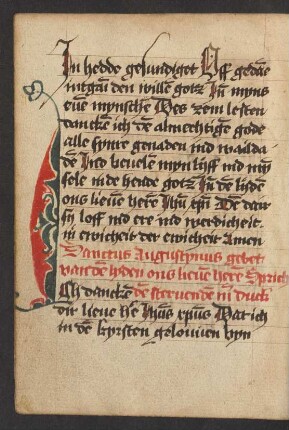 In hedde gesundiget Off gedāe
nit gāu den willē gotz Jn̄ myns
euē mynsche Des zem lesten
dancke ich dē almechtigē gode
alle synre genaden ind waılda
dē Ind beuele myn lyff ind myn
sele in de hende gotz Jn dē lijdē
ons lieuē herē Jhū xp̄ī De dair
sy loff ind ere ind werdicheit
in ewicheit der ewicheit Amen
Sanctus Augustynus gebet
van dē lyden ons lieuē herē Sprich
Ich dancke dē steruendē in druck
dir lieue he Jhūs xpūs Dat ich
in dē kyrsten gelouuen byn